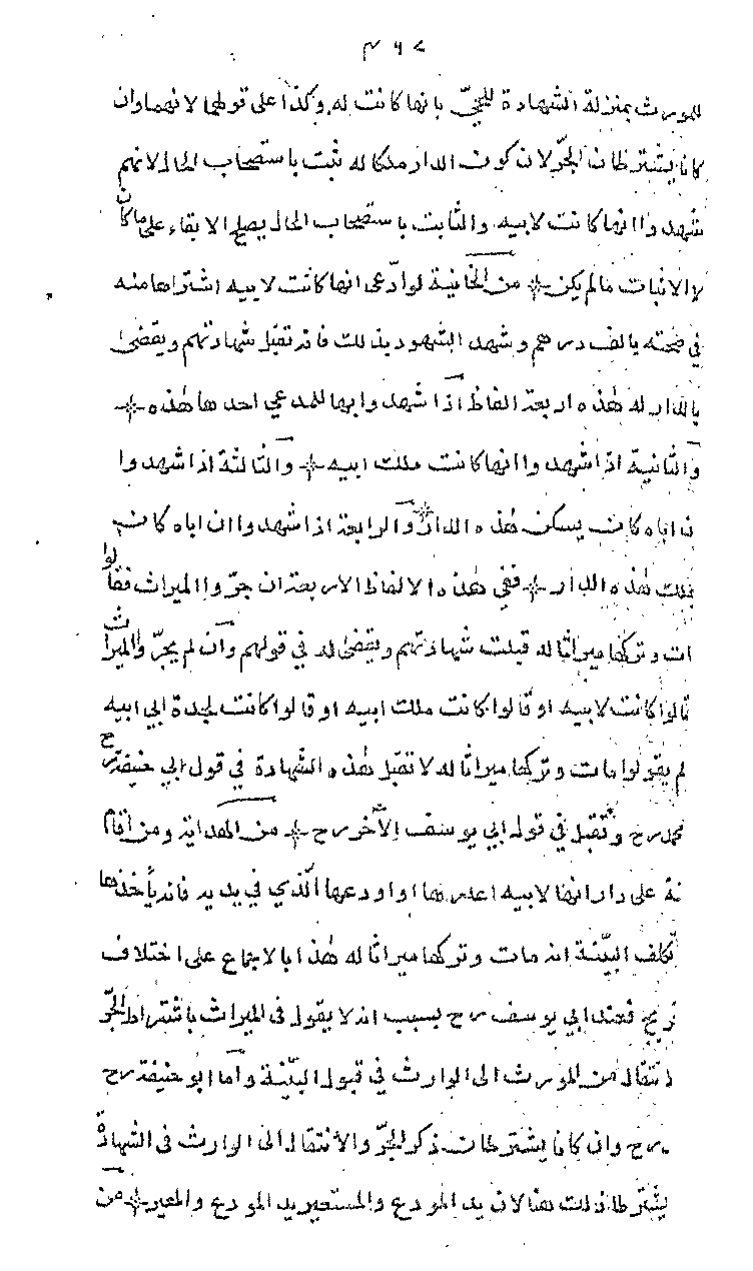 ٣٦٧
للمورث بمنزلة الشهادة للحيّ بانها كانت له وكذا على قولهما لانهما وان
كانا يشترطان الجرّ لان كون الدار ملكا له ثبت باستصحاب الحال لانهم
شهدوا انها كانت لابيه والثابت باستصحاب الحال يصلح لابقاء على ما كان
لا لاثبات مالم يكن من الخانية لو ادّعى انها كانت لابيه اشتراها منه
في صحته بالف درهم وشهد الشهود بذلك فانه تقبل شهادتهم ويقضى
بالدار له هٰذه اربعة الفاظ اذا شهدوا بها للمدعي احدها هٰذه
والثانية اذا شهدوا انها كانت ملك ابيه والثالثة اذا شهدوا
ن اباه كان يسكن هٰذه الدار والرابعة اذا شهدوا ان اباه كان
يملك هٰذه الدار ففي هٰذه الالفاظ الاربعة ان جرّوا الميراث فقالوا
ات وتركها ميراثا له قبلت شهادتهم ويقضى له في قولهم وان لم يجرّوا الميراث
قالوا كانت لابيه او قالوا كانت ملك ابيه او قالوا كانت لجدة ابي ابيه
لم يقولوا مات وتركها ميراثا له لا تقبل هٰذه الشهادة في قول ابي حنيفة رح
محمد رح وتقبل في قول ابي يوسف الآخر رح من الهداية ومن اقام
نة على دار انها لابيه اعارها او اودعها الّذي في يديه فانه يأخذها
تكلف البيّنة انه مات وتركها ميراثا له هٰذا بالاجماع على اختلاف
فعند ابي يوسف رح بسبب انه لا يقول في الميراث باشتراط الجرّ
انتقال من المورث الى الوارث في قبول البيّنة وامّا ابو حنيفة رح
رح وان كانا يشترطان ذكر الجرّ والانتقال الى الوارث في الشهادة
يشترطا ذلك هنا لان يد المودع والمستعير يد المودع والمعير من